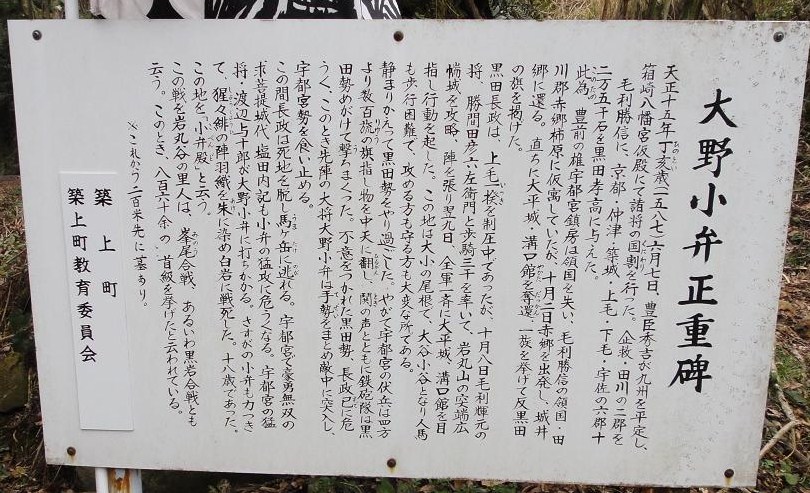 大野小弁正重碑
天正十五年丁亥歳(一五八七)六月七日、豊臣秀吉が九州を平定し、
箱崎八幡宮仮殿にて諸将の国割を行った。企救・田川の二郡を
毛利勝信に、京都・仲津・築城・上毛・下毛・宇佐の六郡十
二万五千石を黒田孝高に与えた。
此為、豊前の雄宇都宮鎮房は領国を失い、毛利勝信の領国・田
川郡赤郷柿原に仮寓していたが、十月二日赤郷を出発し、城井
郷に還る。直ちに大平城・溝口館を奪還、一族を挙げて反黒田
の旗を掲げた。
黒田長政は、上毛一揆を制圧中であったが、十月八日毛利輝元の
将、勝間田彦六左衛門と歩騎二千を率いて、岩丸山の突端広
幡城を攻略、陣を張り翌九日、全軍一斉に大平城、溝口館を目
指し行動を起した。この地は大小の尾根で、大谷小谷となり人馬
も歩行困難で、攻める方も守る方も大変な所である。
静まりかえって黒田勢をやり過ごした。やがて宇都宮の伏兵は四方
より数百旒の旗指し物を中天に翻し、鬨の声とともに鉄砲隊は黒
田勢めがけて撃ちまくった。不意をつかれた黒田勢、長政已に危
うく、このとき先陣の大将大野小弁は手勢をまとめ敵中に突入し、
宇都宮勢を食い止める。
この間長政は死地を脱し馬ヶ岳に逃れる。宇都宮で豪勇無双の
求菩提城代、塩田内記も小弁の猛攻に危うくなる。宇都宮の猛
将・渡辺与十郎が大野小弁に打ちかかる。さすがの小弁も力つき
て、猩々緋の陣羽織を朱に染め白岩に戦死した。十八歳であった。
この地を「小弁殿」と云う。
この戦を岩丸谷の里人は、峯尾合戦、あるいわ黒岩合戦とも
云う。このとき、八百六十余の首級を挙げたと云われている。
※これから二百米先に墓あり。
築上町
築上町教育委員会